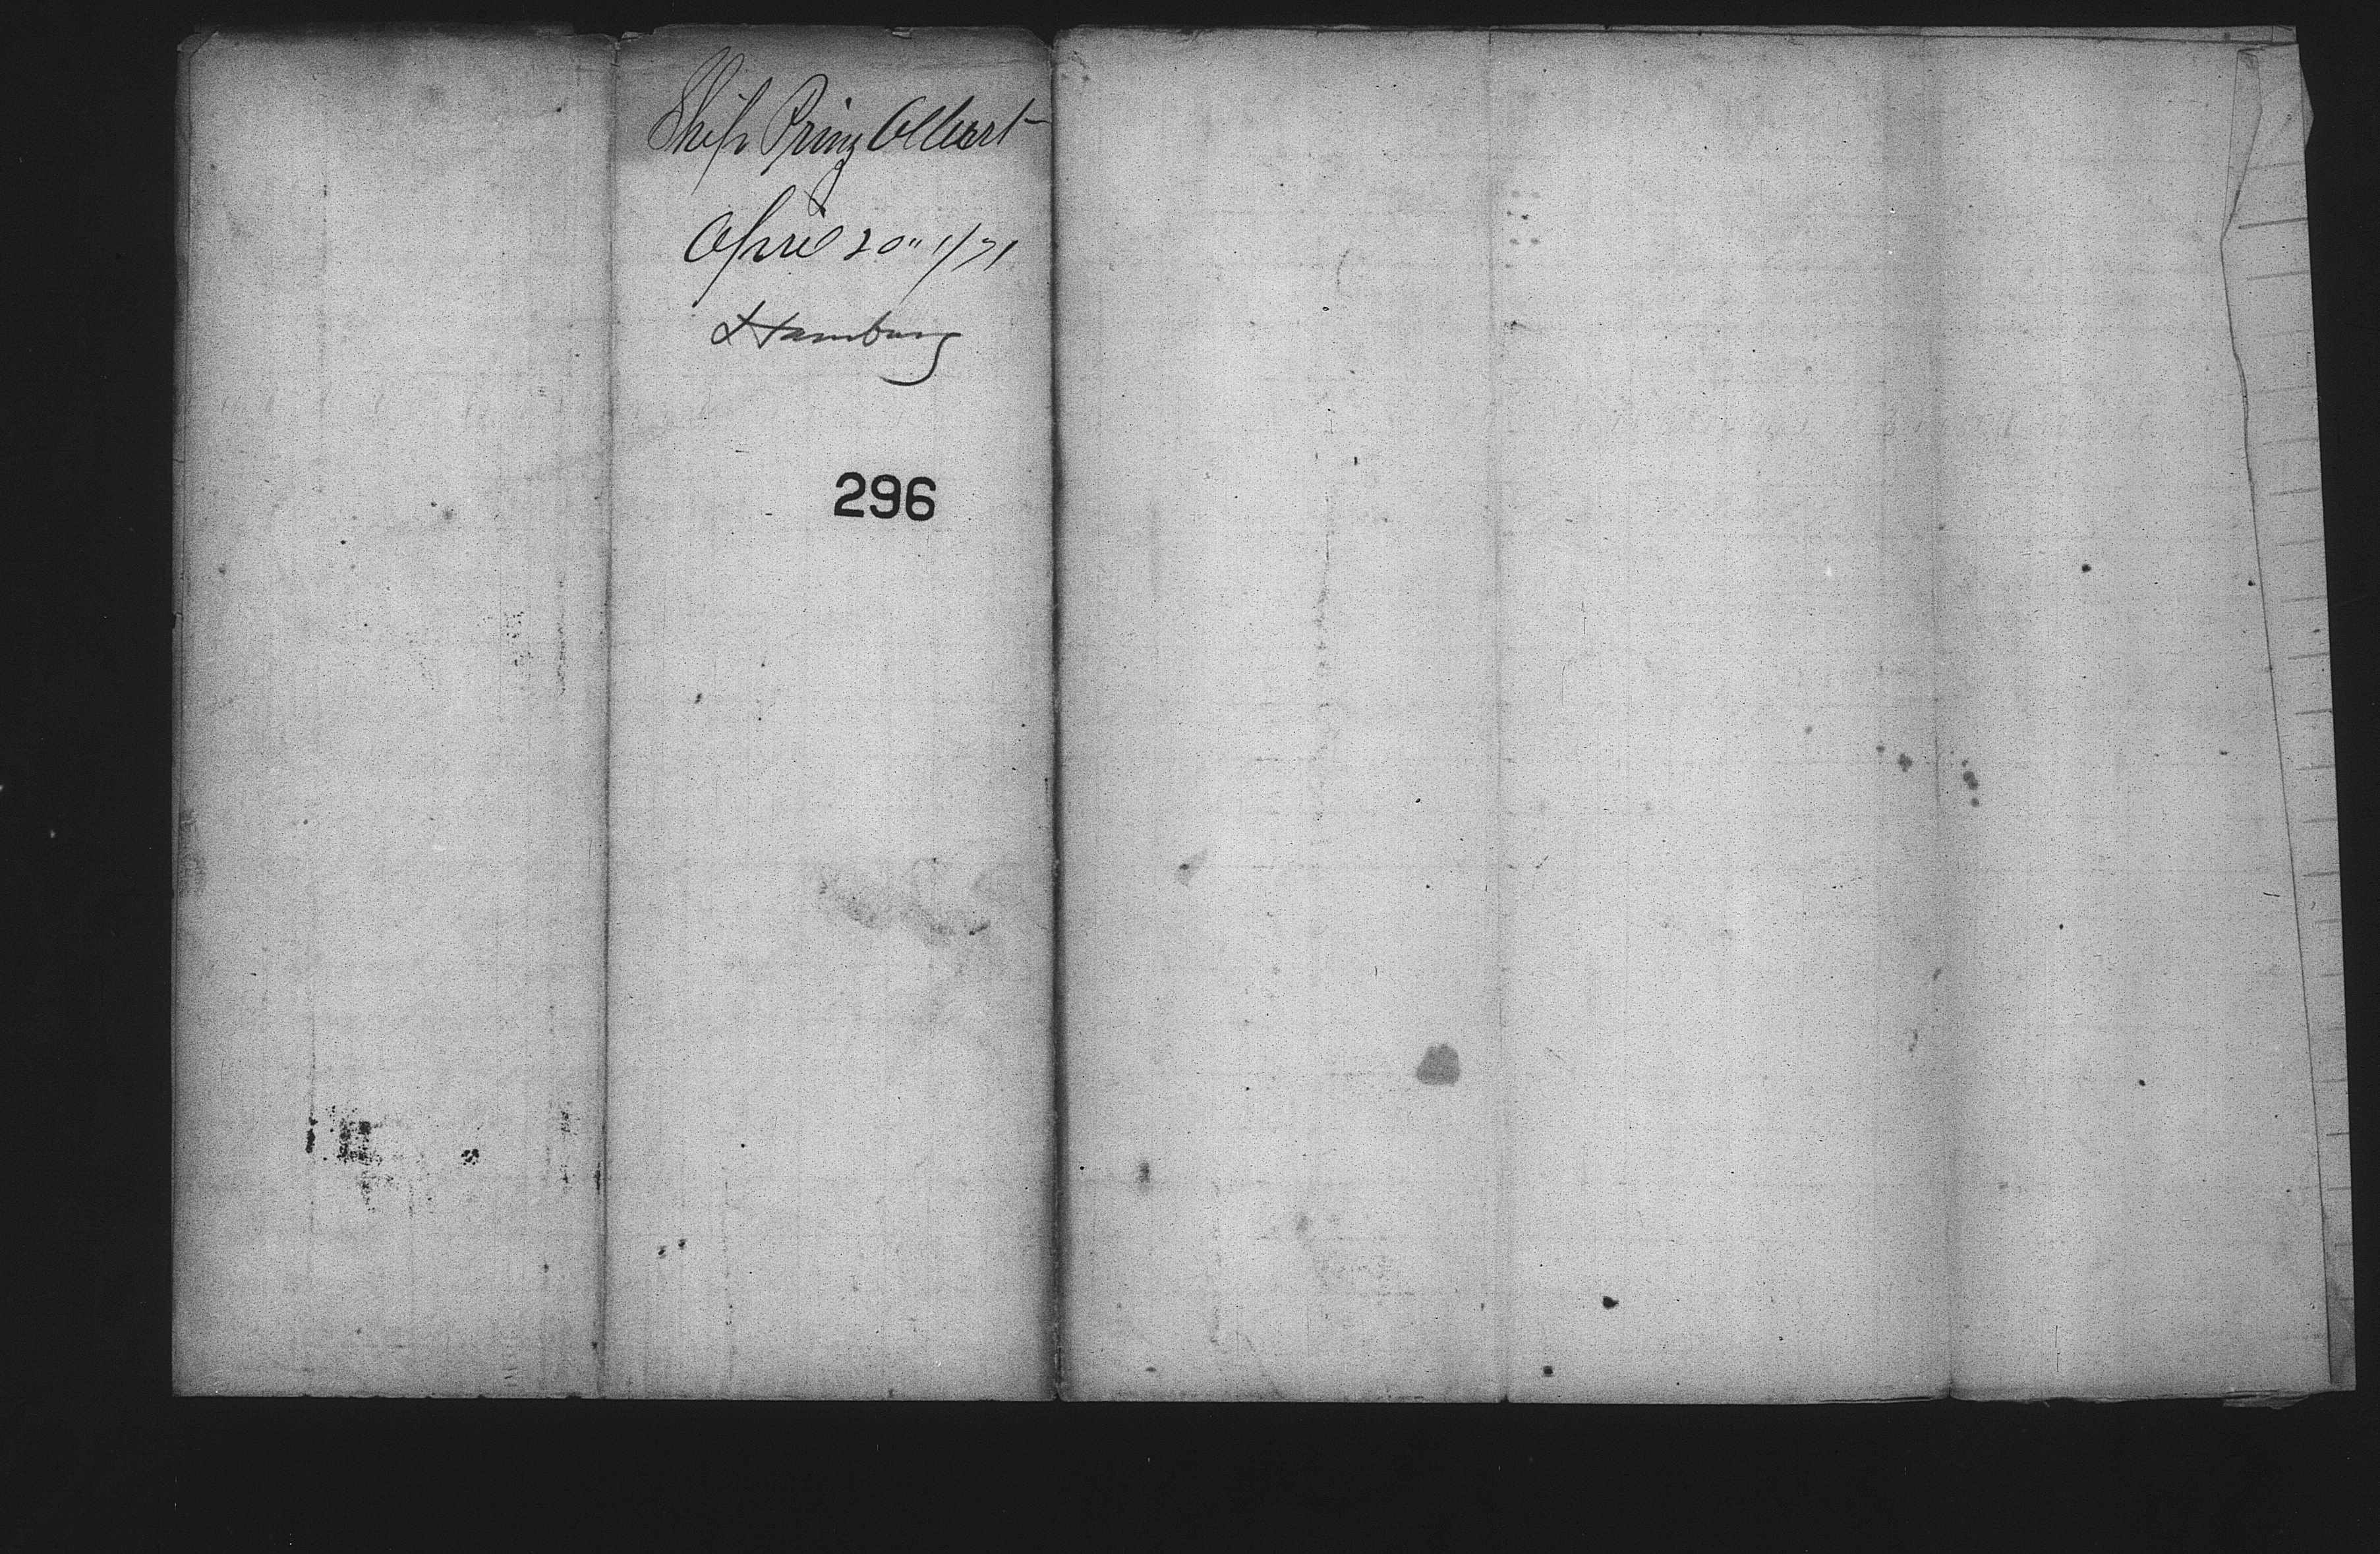 Ship Prinz Albert
April 20" 1/71
Hamburg
296